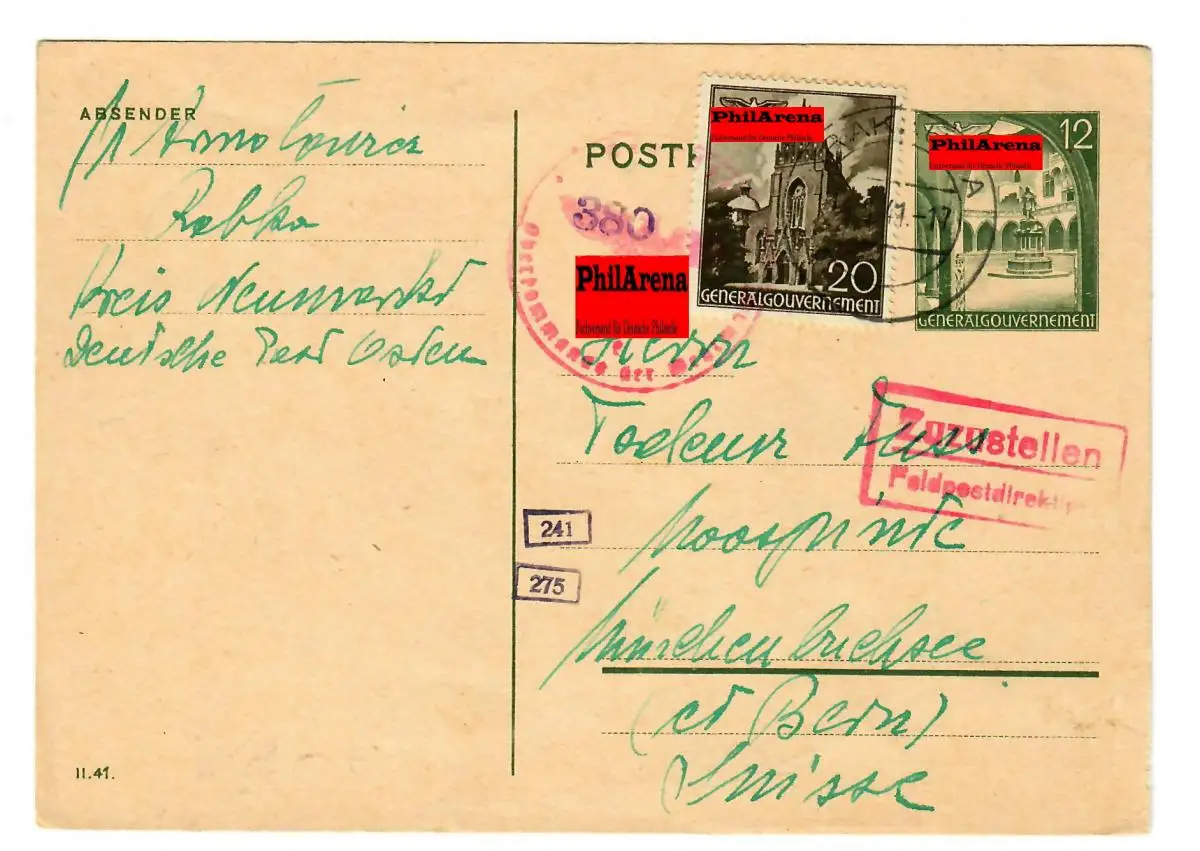 ABSENDER
Rabka
Kreis Neumarkt
Deutsche Post Osten
II.41.
POSTK
380
Oberkommando der
PhilArena
Fachversand für Deutsche Philatelie
PhilArena
Fachversand für Deutsche Philatelie
20
GENERALGOUVERNEMENT
12
PhilArena
Fachversand für Deutsche Philatelie
GENERALGOUVERNEMENT
Herrn
Zuzustellen
Feldpostdirekti
241
275
Münchenbuchsee
(ct Bern)
Suisse